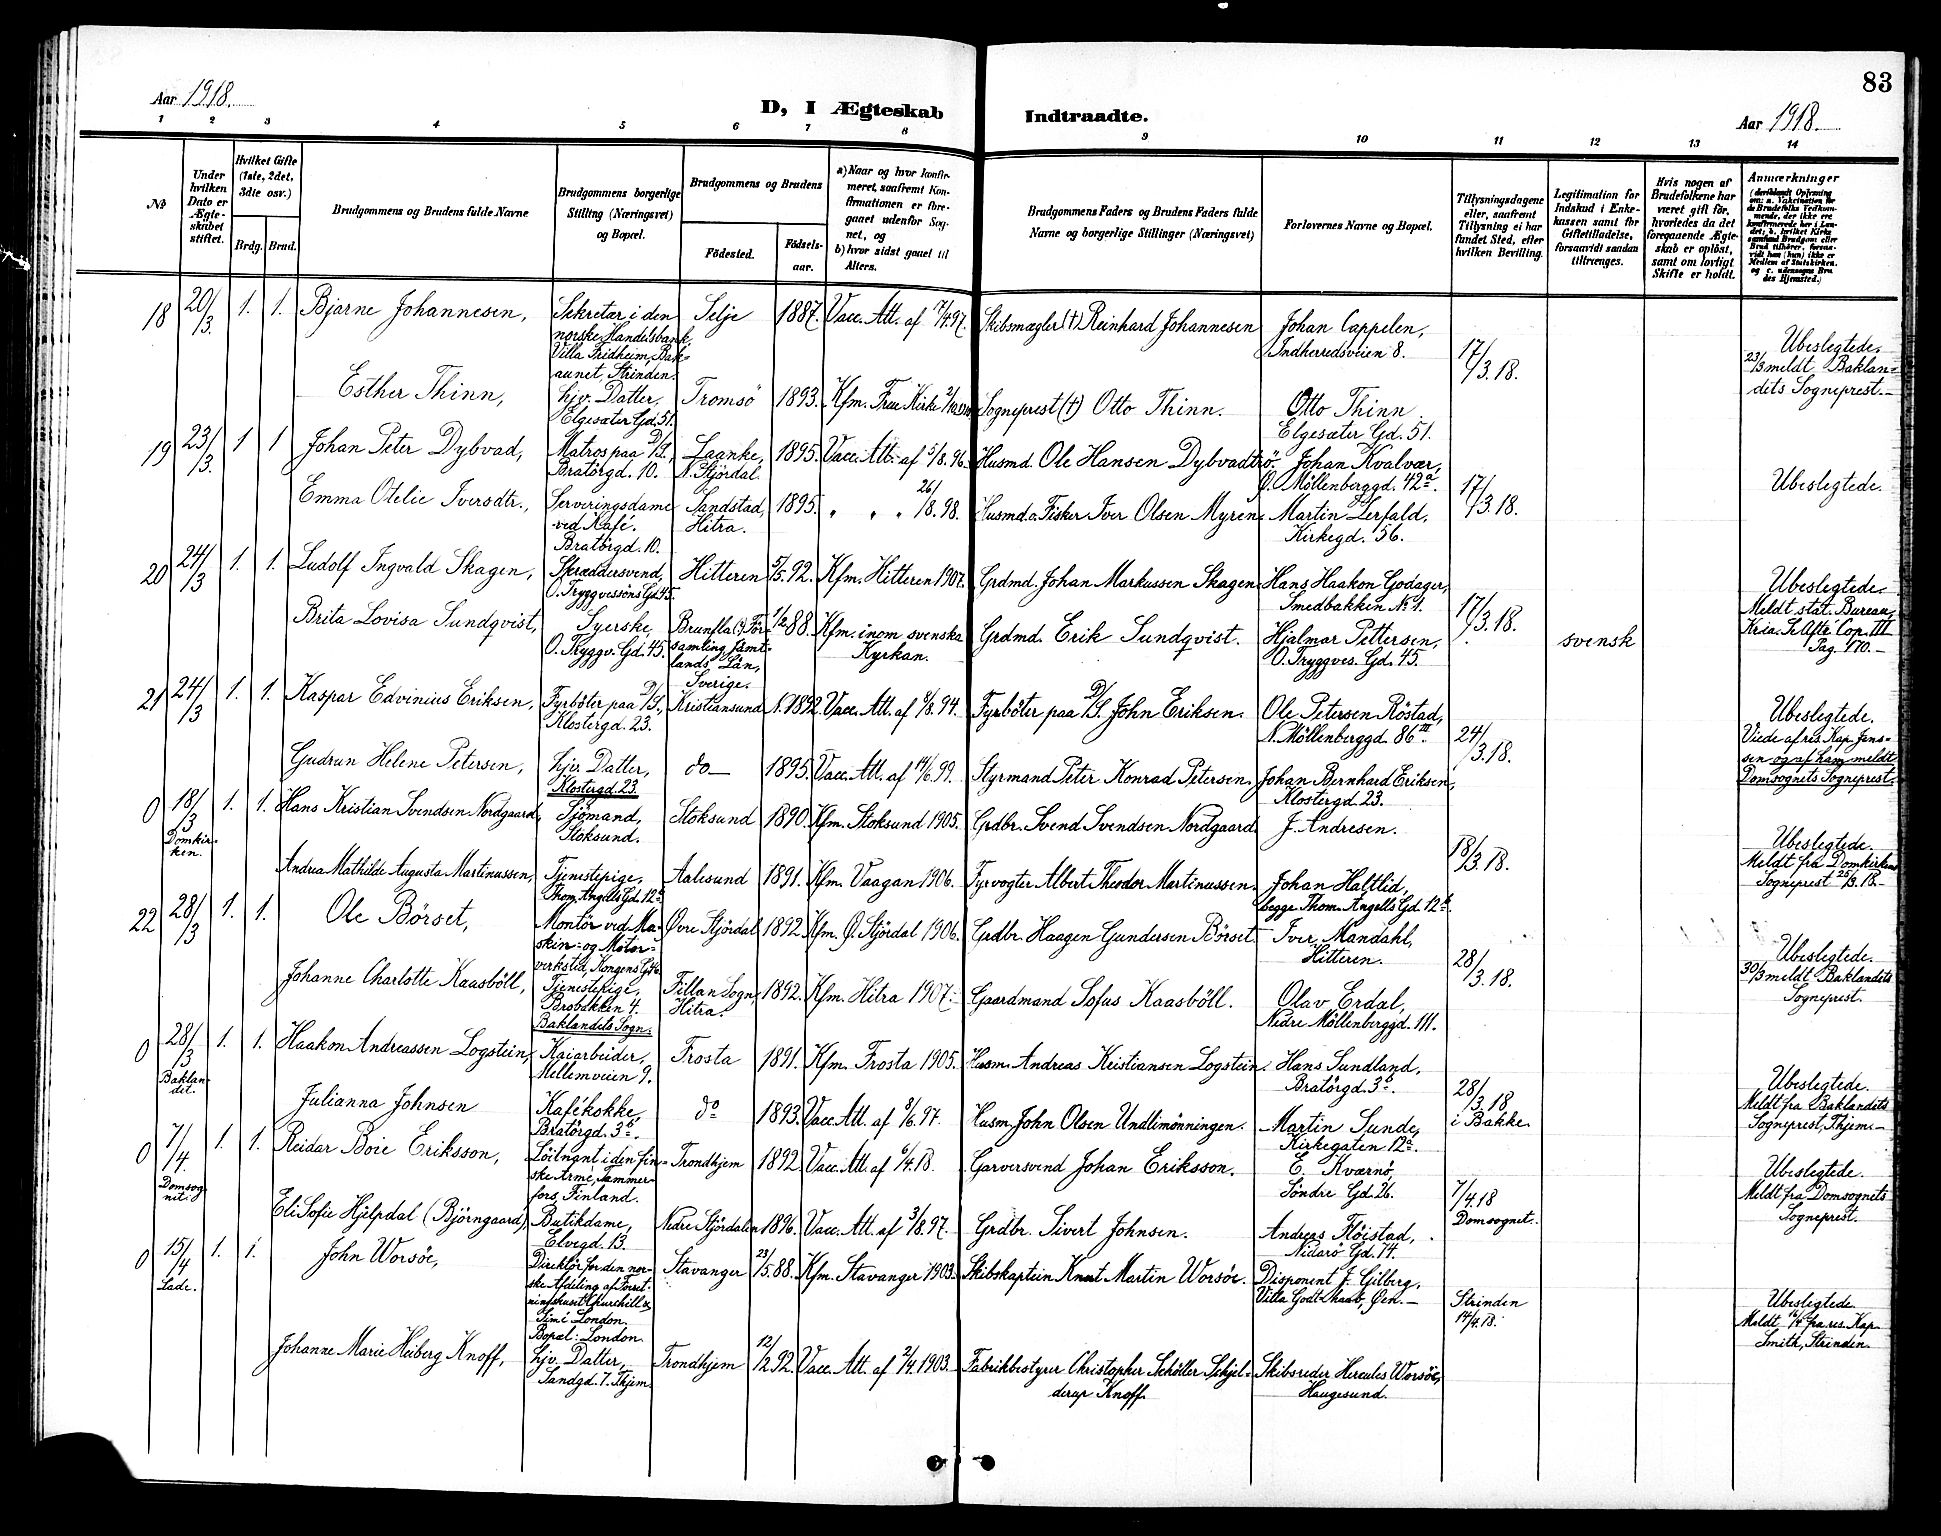 83
Aar 1918.
D, I Ægteskab Indtraadte.
Aar 1918.
1 2 3 4 5 6 7 8 9 10 11 12 13 14
No
Under hvilken Dato er Ægteskabet stiftet.
Hvilket Gifte (1ste, 2det, 3die osv.)
Brdg. Brud.
Brudgommens og Brudens fulde Navne
Brudgommens borgerlige Stilling (Næringsvei) og Bopæl.
Brudgommens og Brudens
Fødested.
Fødselsaar.
a) Naar og hvor konfirmeret, saafremt Konfirmationen er foregaaet udenfor Sognet, og
b) hvor sidst gaaet til Alters.
Brudgommens Faders og Brudens Faders fulde Navne og borgerlige Stillinger (Næringsvei)
Forlovernes Navne og Bopæl.
Tillysningsdagene eller, saafremt Tillysning ei har fundet Sted, efter hvilken Bevilling.
Legitimation for Indskud i Enkekassen samt for Giftetilladelse, forsaavidt saadan tiltrænges.
Hvis nogen af Brudefolkene har været gift før, hvorledes da det foregaaende Ægteskab er opløst, samt om lovligt Skifte er holdt.
Anmærkninger
18 20/3. 1. 1. Bjarne Johannesen, Sekretær i den norske Handelsbank, Villa Fridheim, Bakaunet, Strinden. Selje 1887. Vacc. Att. af 7/4.97. Skibsmægler (†) Reinhard Johannesen Johan Cappelen, Indherredsveien 8. 17/3.18. Ubeslegtede. 23/3 meldt Baklandets Sogneprest.-
Esther Thinn, hjv. Datter, Elgesæter Gd. 51. Tromsö 1893. Kfm. Frue Kirke Sogneprest (†) Otto Thinn. Otto Thinn Elgesæter Gd. 51.
19 23/3. 1 1 Johan Peter Dybvad, Matros paa D/S., Bratörgd. 10. Laanke, N. Stjördal. 1895. Vacc. Att. af 5/8.96. Husmd. Ole Hansen Dybvadtrö. Johan Kvalvær, Ø. Möllenberggd. 42a. 17/3.18. Ubeslegtede.
Emma Otelie Iversdtr., Serveringsdame ved Kafé. Bratörgd. 10. Sandstad, Hitra. 1895. " " " 26/8.98. Husmd. o. Fisker Iver Olsen Myren Martin Lerfald, Kirkegd. 56.
20 24/3 1. 1. Ludolf Ingvald Skagen, Skræddersvend, O. Tryggvessöns Gd. 45. Hitteren 5/5.92. Kfm. Hitteren 1907. Grdmd. Johan Markussen Skagen Hans Haakon Godager, Smedbakken No 1. 17/3.18. Ubeslegtede. Meldt stat. Bureau, Kria. Pag. 170.-
Brita Lovisa Sundqvist, Syerske, O. Tryggv. Gd. 45. Brunflo (?) Församling Jämtlands Län, Sverige. 1/2 88. Kfm. inom svenska Kyrkan. Grdmd. Erik Sundqvist. Hjalmar Pettersen, O. Tryggves. Gd. 45. svensk
21 24/3 1. 1. Kaspar Edvinius Eriksen, Fyrböter paa D/S., Klostergd. 23. Kristiansund N. 1892. Vacc. Att. af 8/8.94. Fyrböter paa D/S. John Eriksen. Ole Petersen Röstad, N. Möllenberggd. 86 III. 24/3.18. Ubeslegtede. Viede af res. Kap. Janssen og af ham meldt Domsognets Sogneprest.
Gudrun Helene Petersen, hjv. Datter, Klostergd. 23. do- 1895. Vacc. Att. af 14/6.99. Styrmand Peter Konrad Petersen. Johan Bernhard Eriksen, Klostergd. 23.
0 18/3 Domkirken. 1. 1. Hans Kristian Svendsen Nordgaard, Sjömand, Stoksund. Stoksund 1890. Kfm. Stoksund 1905. Grdbr. Svend Svendsen Nordgaard. J. Andresen. 18/3.18. Ubeslegtede. Meldt fra Domkirkens Sogneprest 25/3.18.-
Andrea Mathilde Augusta Martinussen, Tjenestepige, Thom. Angells Gd. 12b. Aalesund 1891. Kfm. Vaagan 1906. Fyrvogter Albert Theodor Martinussen. Johan Haltlid, begge Thom. Angells Gd. 12b.
22 28/3 1. 1. Ole Börset, Montör ved Maskin- og Motorverksted, Kongens Gd. Øvre Stjördal 1892. Kfm. Ø. Stjördal 1906. Grdbr. Haagen Gundersen Börset. Iver Mandahl, Hitteren. 28/3.18. Ubeslegtede. 30/3 meldt Baklandets Sogneprest.
Johanne Charlotte Kaasböll, Tjenestepige, Brobakken 4. Baklandets Sogn. Fillan Sogn, Hitra. 1892. Kfm. Hitra 1907. Gaardmand Sofus Kaasböll. Olav Erdal, Nedre Möllenberggd. 111.
0 28/3 Baklandet. 1. 1. Haakon Andreassen Logstein, Kaiarbeider, Mellemveien 9. Frosta 1891. Kfm. Frosta 1905. Husm. Andreas Kristiansen Logstein. Hans Sundland, Bratörgd. 3b. 28/3.18 i Bakke. Ubeslegtede. Meldt fra Baklandets Sogneprest, Thjem.-
Julianna Johnsen Kafékokke, Bratörgd. 3b. do 1893. Vacc. Att. af 8/6.97. Husm. John Olsen Undlimönningen. Martin Sunde, Kirkegaten 12a.
0 7/4 Domsognet. 1. 1. Reidar Boie Eriksson, Löitnant i den finske Armé, Tammerfors, Finland. Trondhjem 1892 Vacc. Att. af 6/4.18. Garversvend Johan Eriksson. E. Kværnö, Söndre Gd. 26. 7/4.18 Domsognet. Ubeslegtede. Meldt fra Domsognets Sogneprest.
Eli Sofie Hjelpdal (Björngaard), Butikdame, Elvegd. 13. Nedre Stjördalen 1896. Vacc. Att. af 3/8.97. Grdbr. Sivert Johnsen. Andreas Höistad, Nidarö Gd. 74.
0 15/4 Lade. 1. 1. John Worsöe, Direktör for den norske Afdeling af Forretningshuset Churchill & Sim i London. Bopæl: London. Stavanger 23/5.88. Kfm. Stavanger 1903. Skibskaptein Knut Martin Worsöe. Disponent J. Gilberg, Villa Godthaab, Øen.- Strinden 14/4.18. Ubeslegtede. Meldt 16/4 fra res. Kap. Smith, Strinden.
Johanne Marie Heiberg Knoff, hjv. Datter, Sandgd. 7. Thjem. Trondhjem 12/2.92. Vacc. Att. af 2/4 1903. Fabrikbestyrer Christopher Schöller Schjelderup Knoff. Skibsreder Hercules Worsöe, Haugesund.